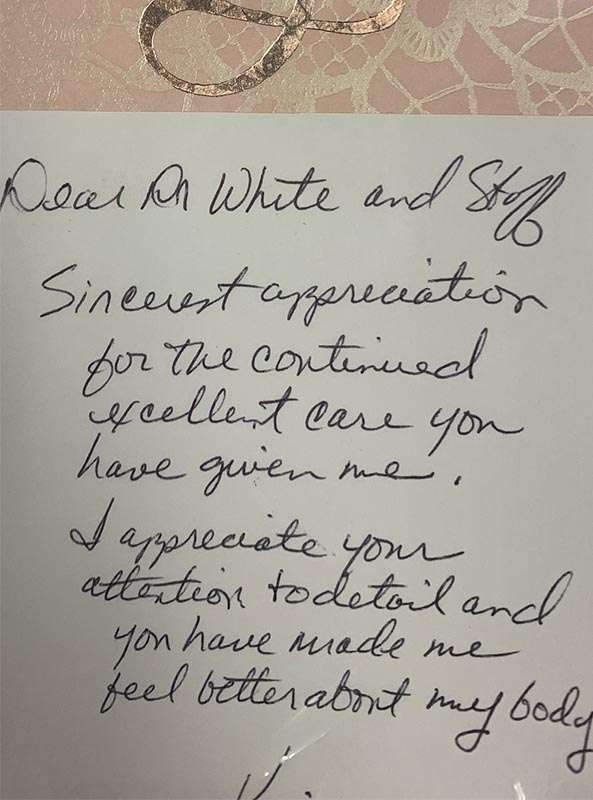 Dear Dr White and Staff
Sincerest appreciation
for the continued
excellent care you
have given me.
I appreciate your
attention to detail and
you have made me
feel better about my body